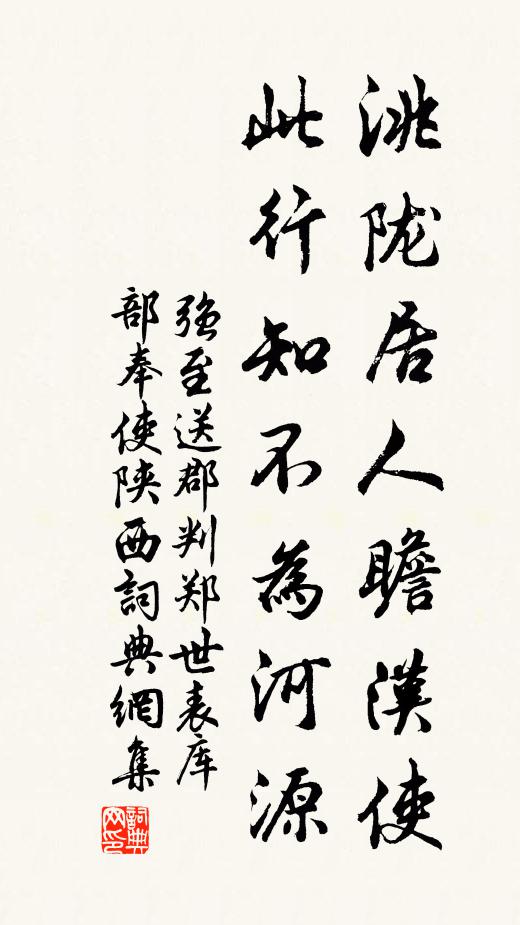 洮陇居人瞻漢使
此行知不為河源
强至送郡判郑世表库
部奉使陕西詞典網集
詞典网印